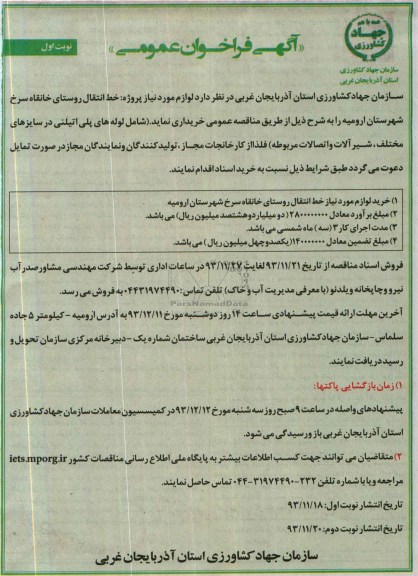 همه با هم
جهاد
کشاورزی
سازمان جهاد کشاورزی
استان آذربایجان غربی
«آگهی فراخوان عمومی»
نوبت اول
سازمان جهادکشاورزی استان آذربایجان غربی در نظر دارد لوازم مورد نیاز پروژه: خط انتقال روستای خانقاه سرخ
شهرستان ارومیه را به شرح ذیل از طریق مناقصه عمومی خریداری نماید.(شامل لوله های پلی اتیلنی در سایزهای
مختلف، شیر آلات و اتصالات مربوطه) فلذا از کارخانجات مجاز، تولیدکنندگان ونمایندگان مجاز در صورت تمایل
دعوت می گردد طبق شرایط ذیل نسبت به خرید اسناد اقدام نمایند.
۱) خرید لوازم مورد نیاز خط انتقال روستای خانقاه سرخ شهرستان ارومیه
۲) مبلغ برآورد معادل ۲۸۰۰۰۰۰۰۰۰ ( دو میلیارد و هشتصد میلیون ریال) می باشد.
۳) مدت اجرای کار ۳ (سه ) ماه شمسی می باشد.
۴) مبلغ تضمین معادل ۱۴۰۰۰۰۰۰۰ (یکصدوچهل میلیون ریال ) می باشد.
فروش اسناد مناقصه از تاریخ ۹۳/۱۱/۲۱ لغایت ۹۳/۱۱/۲۷ در ساعات اداری توسط شرکت مهندسی مشاور صدر آب
نیرو و چاپخانه ویلدنو (با معرفی مدیریت آب و خاک) تلفن تماس: ۰۴۴۳۱۹۷۴۴۹۰ به فروش می رسد.
آخرین مهلت ارائه قیمت پیشنهادی ساعت ۱۴ روز دوشنبه مورخ ۹۳/۱۲/۱۱ به آدرس ارومیه - کیلومتر ۵ جاده
سلماس- سازمان جهادکشاورزی استان آذربایجان غربی ساختمان شماره یک - دبیرخانه مرکزی سازمان تحویل و
رسید دریافت نمایند.
۱) زمان بازگشایی پاکتها:
پیشنهادهای واصله در ساعت ۹ صبح روز سه شنبه مورخ ۹۳/۱۲/۱۲ در کمیسسیون معاملات سازمان جهادکشاورزی
استان آذربایجان غربی باز و رسیدگی می شود.
۲) متقاضیان می توانند جهت کسب اطلاعات بیشتر به پایگاه ملی اطلاع رسانی مناقصات کشور iets.mporg.ir
مراجعه و یا با شماره تلفن ۲۳۲-۳۱۹۷۴۴۹۰-۰۴۴ تماس حاصل نمایند.
تاریخ انتشار نوبت اول: ۹۳/۱۱/۱۸
تاریخ انتشار نوبت دوم: ۹۳/۱۱/۲۰
سازمان جهاد کشاورزی استان آذربایجان غربی
ParsNamadData